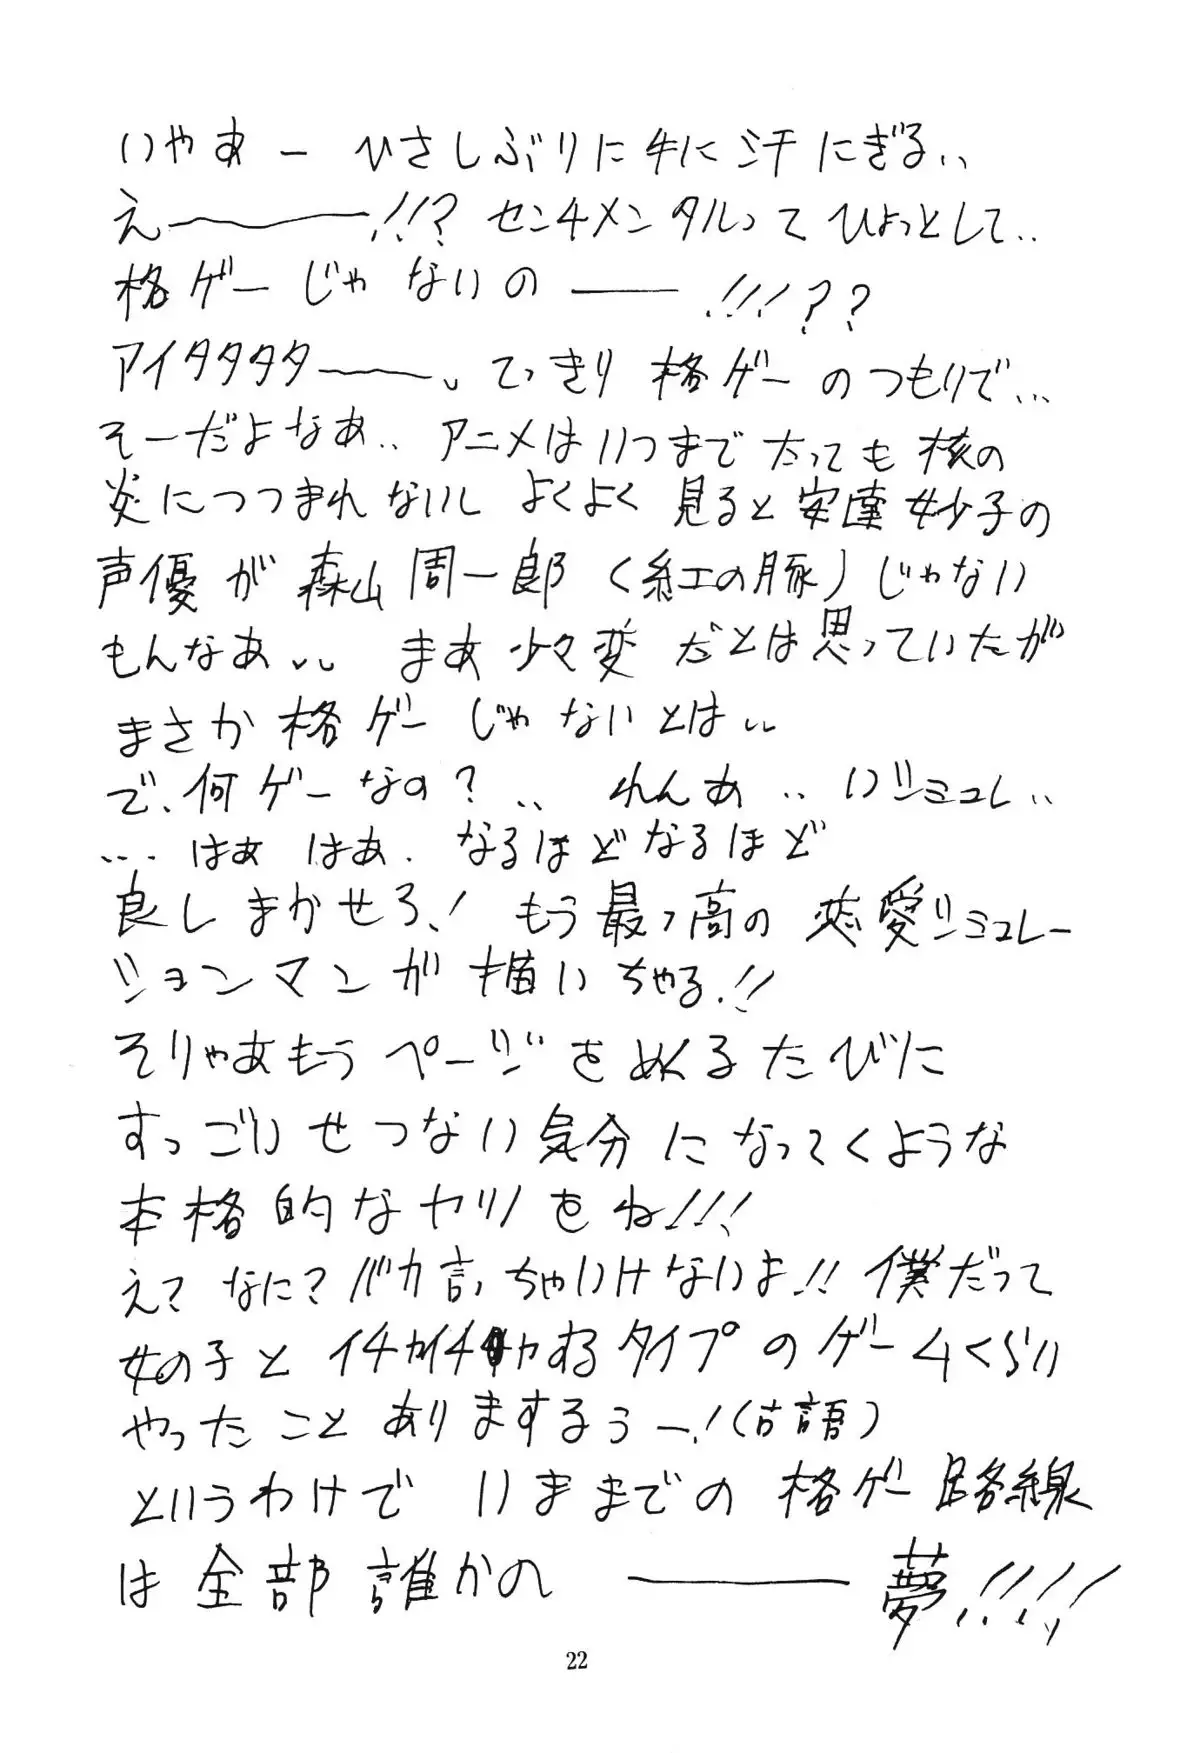 いやあー ひさしぶりに手に汗にぎる..
え〜〜〜!!? センチメンタルってひょっとして..
格ゲーじゃないの――!!!??
アイタタタタ〜〜。てっきり格ゲーのつもりで...
そーだよなあ.. アニメはいつまでたっても核の
炎につつまれないし よくよく見ると安達妙子の
声優が森山周一郎(紅の豚)じゃない
もんなあ.. まあ少々変だとは思っていたが
まさか格ゲーじゃないとは..
で、何ゲーなの?.. れんあ.. いシミュレ..
... はあ はあ. なるほどなるほど
良しまかせろ! もう最っ高の恋愛シミュレー
ションマンガ描いちゃる!!
そりゃあもうページをめくるたびに
すっごいせつない気分になってくような
本格的なヤツをね!!!
え? なに? バカ言っちゃいけないよ!! 僕だって
女の子とイチャイチャするタイプのゲームくらい
やったことありまするぅー!(古語)
というわけで いままでの格ゲー路線
は全部誰かの――夢!!!!
22